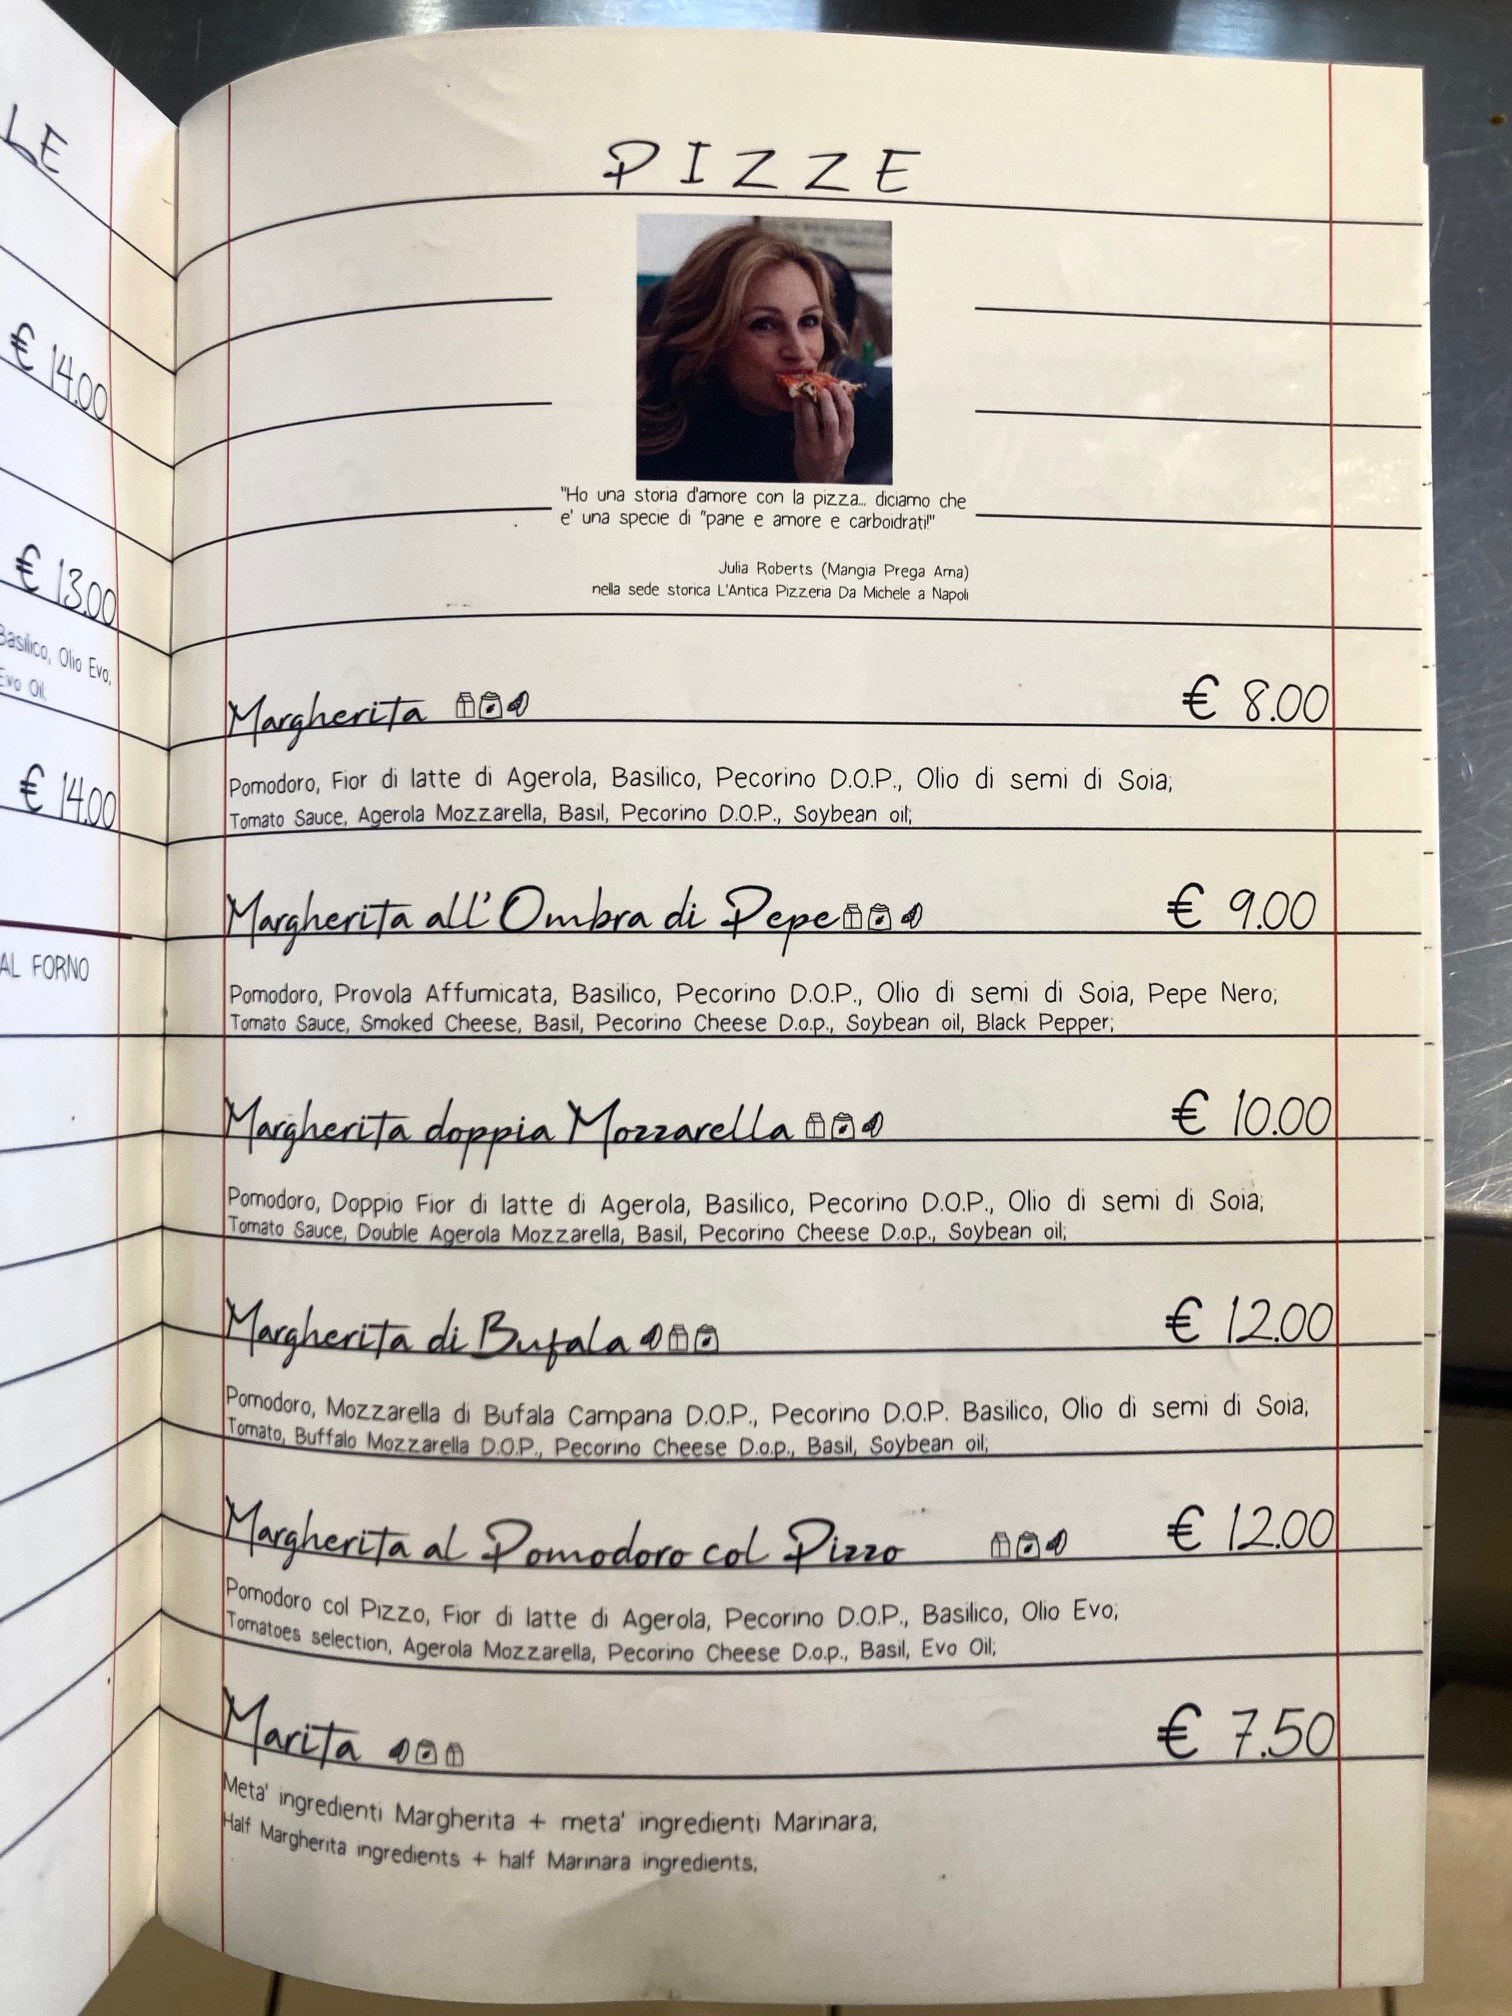 LE
€ 14.00
€ 13.00
Basilico, Olio Evo,
Evo Oil,
€ 14.00
AL FORNO
PIZZE
"Ho una storia d'amore con la pizza... diciamo che
e' una specie di "pane e amore e carboidrati!"
Julia Roberts (Mangia Prega Ama)
nella sede storica L'Antica Pizzeria Da Michele a Napoli
Margherita € 8.00
Pomodoro, Fior di latte di Agerola, Basilico, Pecorino D.O.P., Olio di semi di Soia;
Tomato Sauce, Agerola Mozzarella, Basil, Pecorino D.O.P., Soybean oil;
Margherita all'Ombra di Pepe € 9.00
Pomodoro, Provola Affumicata, Basilico, Pecorino D.O.P., Olio di semi di Soia, Pepe Nero;
Tomato Sauce, Smoked Cheese, Basil, Pecorino Cheese D.o.p., Soybean oil, Black Pepper;
Margherita doppia Mozzarella € 10.00
Pomodoro, Doppio Fior di latte di Agerola, Basilico, Pecorino D.O.P., Olio di semi di Soia;
Tomato Sauce, Double Agerola Mozzarella, Basil, Pecorino Cheese D.o.p., Soybean oil;
Margherita di Bufala € 12.00
Pomodoro, Mozzarella di Bufala Campana D.O.P., Pecorino D.O.P. Basilico, Olio di semi di Soia;
Tomato, Buffalo Mozzarella D.O.P., Pecorino Cheese D.o.p., Basil, Soybean oil;
Margherita al Pomodoro col Pizzo € 12.00
Pomodoro col Pizzo, Fior di latte di Agerola, Pecorino D.O.P., Basilico, Olio Evo;
Tomatoes selection, Agerola Mozzarella, Pecorino Cheese D.o.p., Basil, Evo Oil;
Marita € 7.50
Meta' ingredienti Margherita + meta' ingredienti Marinara;
Half Margherita ingredients + half Marinara ingredients;